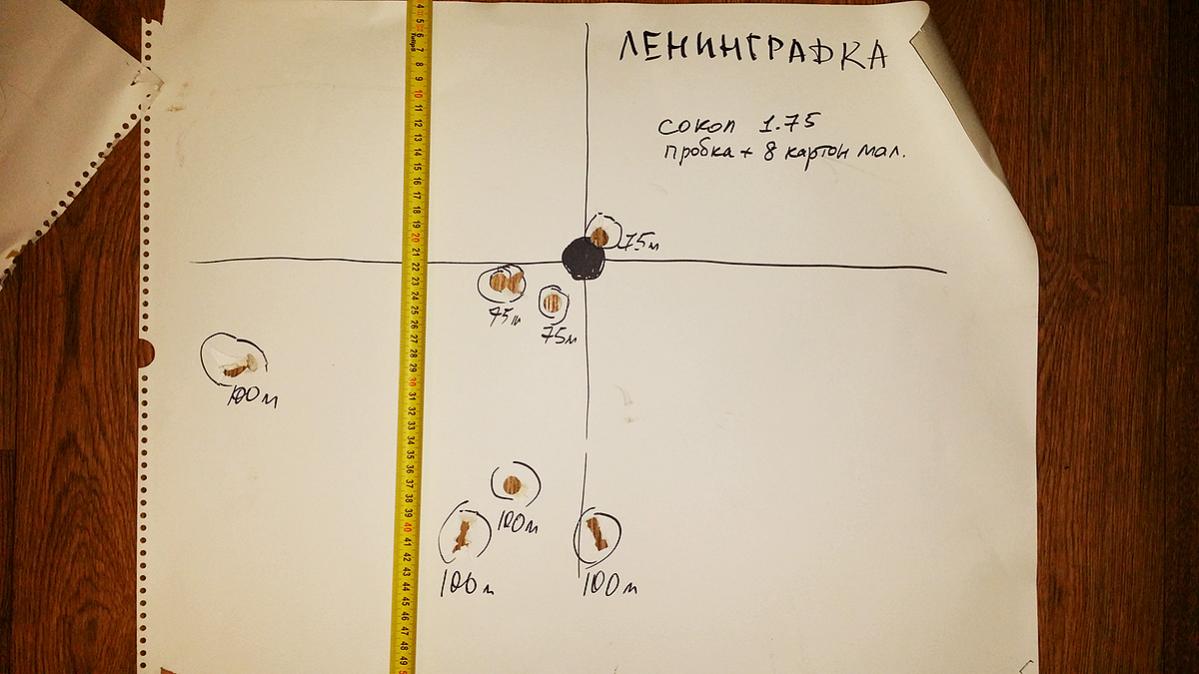 ЛЕНИНГРАДКА
сокол 1.75
пробка + 8 картон мал.
75м
75м
75м
100м
100м
100м
100м
4
5
6
7
8
9
10
11
12
13
14
15
16
17
18
19
20
21
22
23
24
25
26
27
28
29
30
31
32
33
34
35
36
37
38
39
40
41
42
43
44
45
46
47
48
49